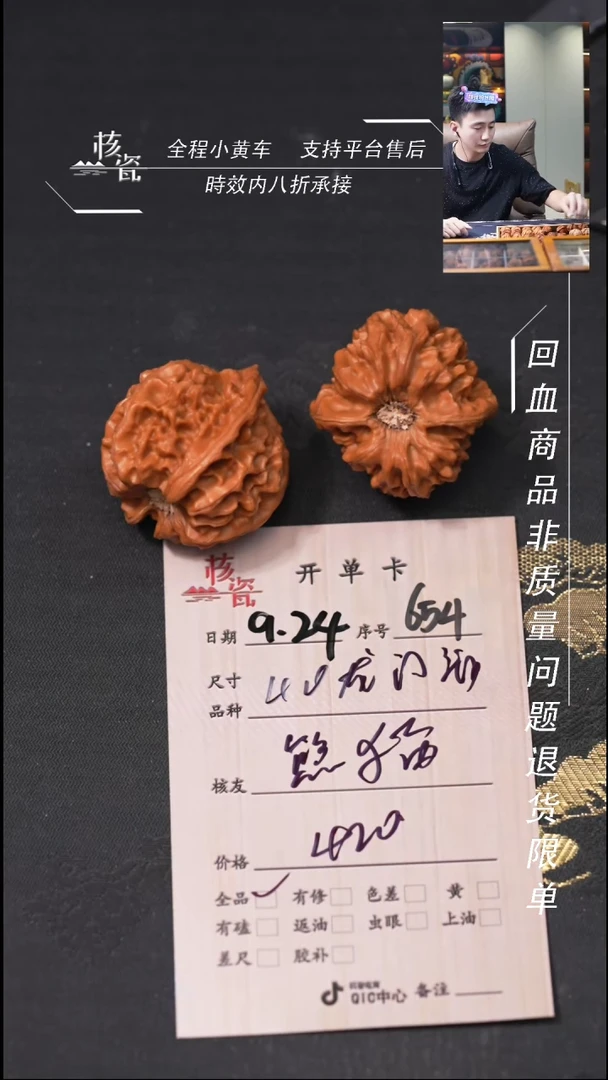 核瓷
全程小黄车 支持平台售后
時效内八折承接
回血商品非质量问题退货限单
核瓷 开单卡
日期 9.24 序号 654
尺寸
品种
核友 熊猫
价格 420
全品 有修 色差 黄
有磕 返油 虫眼 上油
差尺 胶补
抖音电商
QIC中心 备注